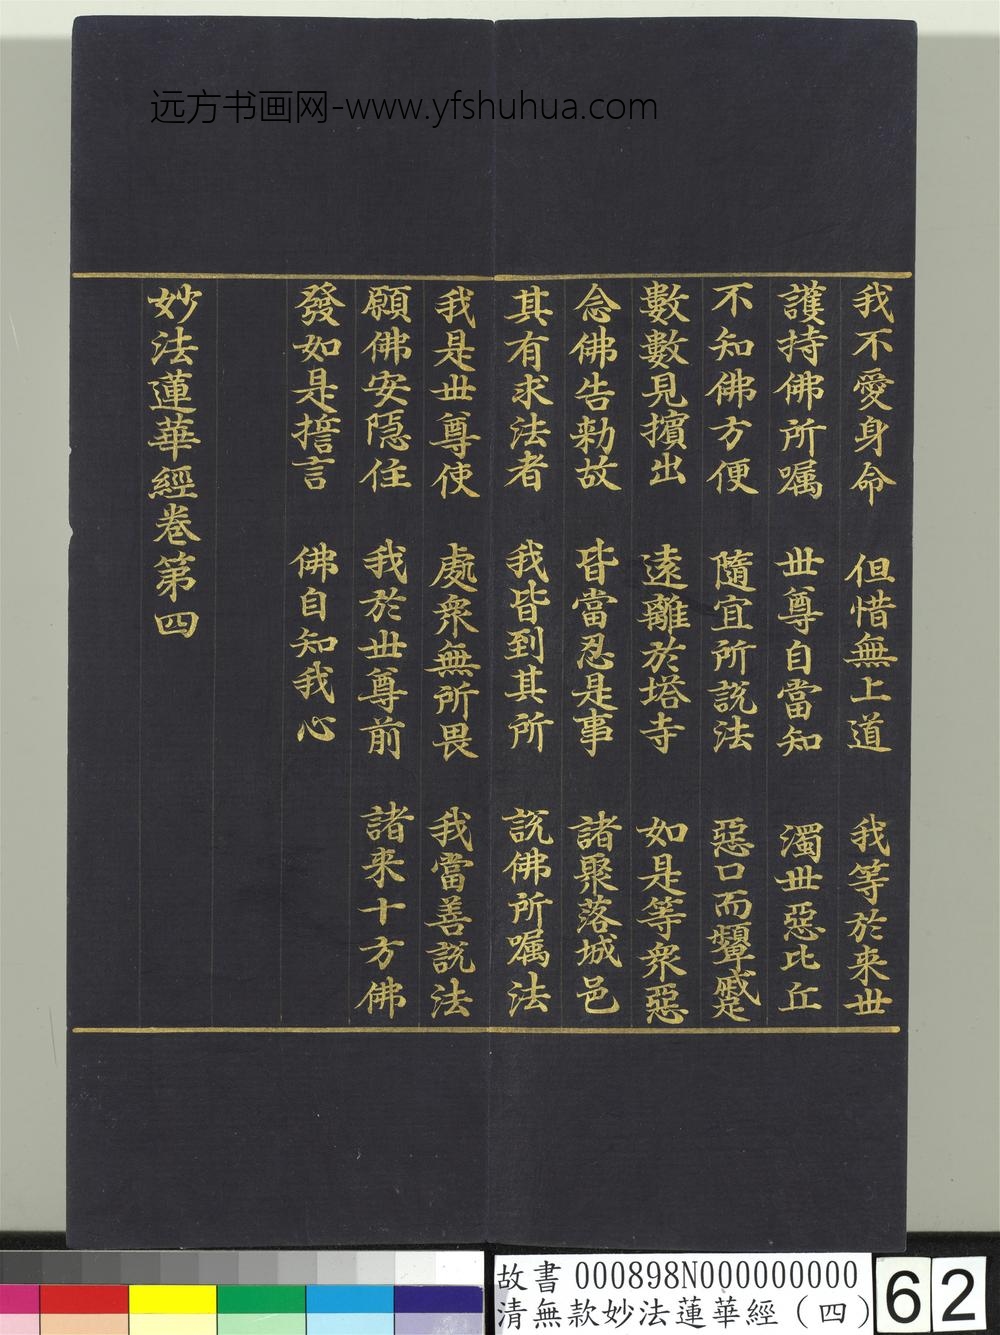 远方书画网-www.yfshuhua.com
我不愛身命 但惜無上道 我等於来世
護持佛所嘱 世尊自當知 濁世惡比丘
不知佛方便 隨宜所說法 惡口而顰蹙
數數見擯出 遠離於塔寺 如是等衆惡
念佛告勅故 皆當忍是事 諸聚落城邑
其有求法者 我皆到其所 說佛所嘱法
我是世尊使 處衆無所畏 我當善說法
願佛安隱住 我於世尊前 諸来十方佛
發如是誓言 佛自知我心
妙法蓮華經卷第四
故書 000898N000000000
清無款妙法蓮華經（四）
62